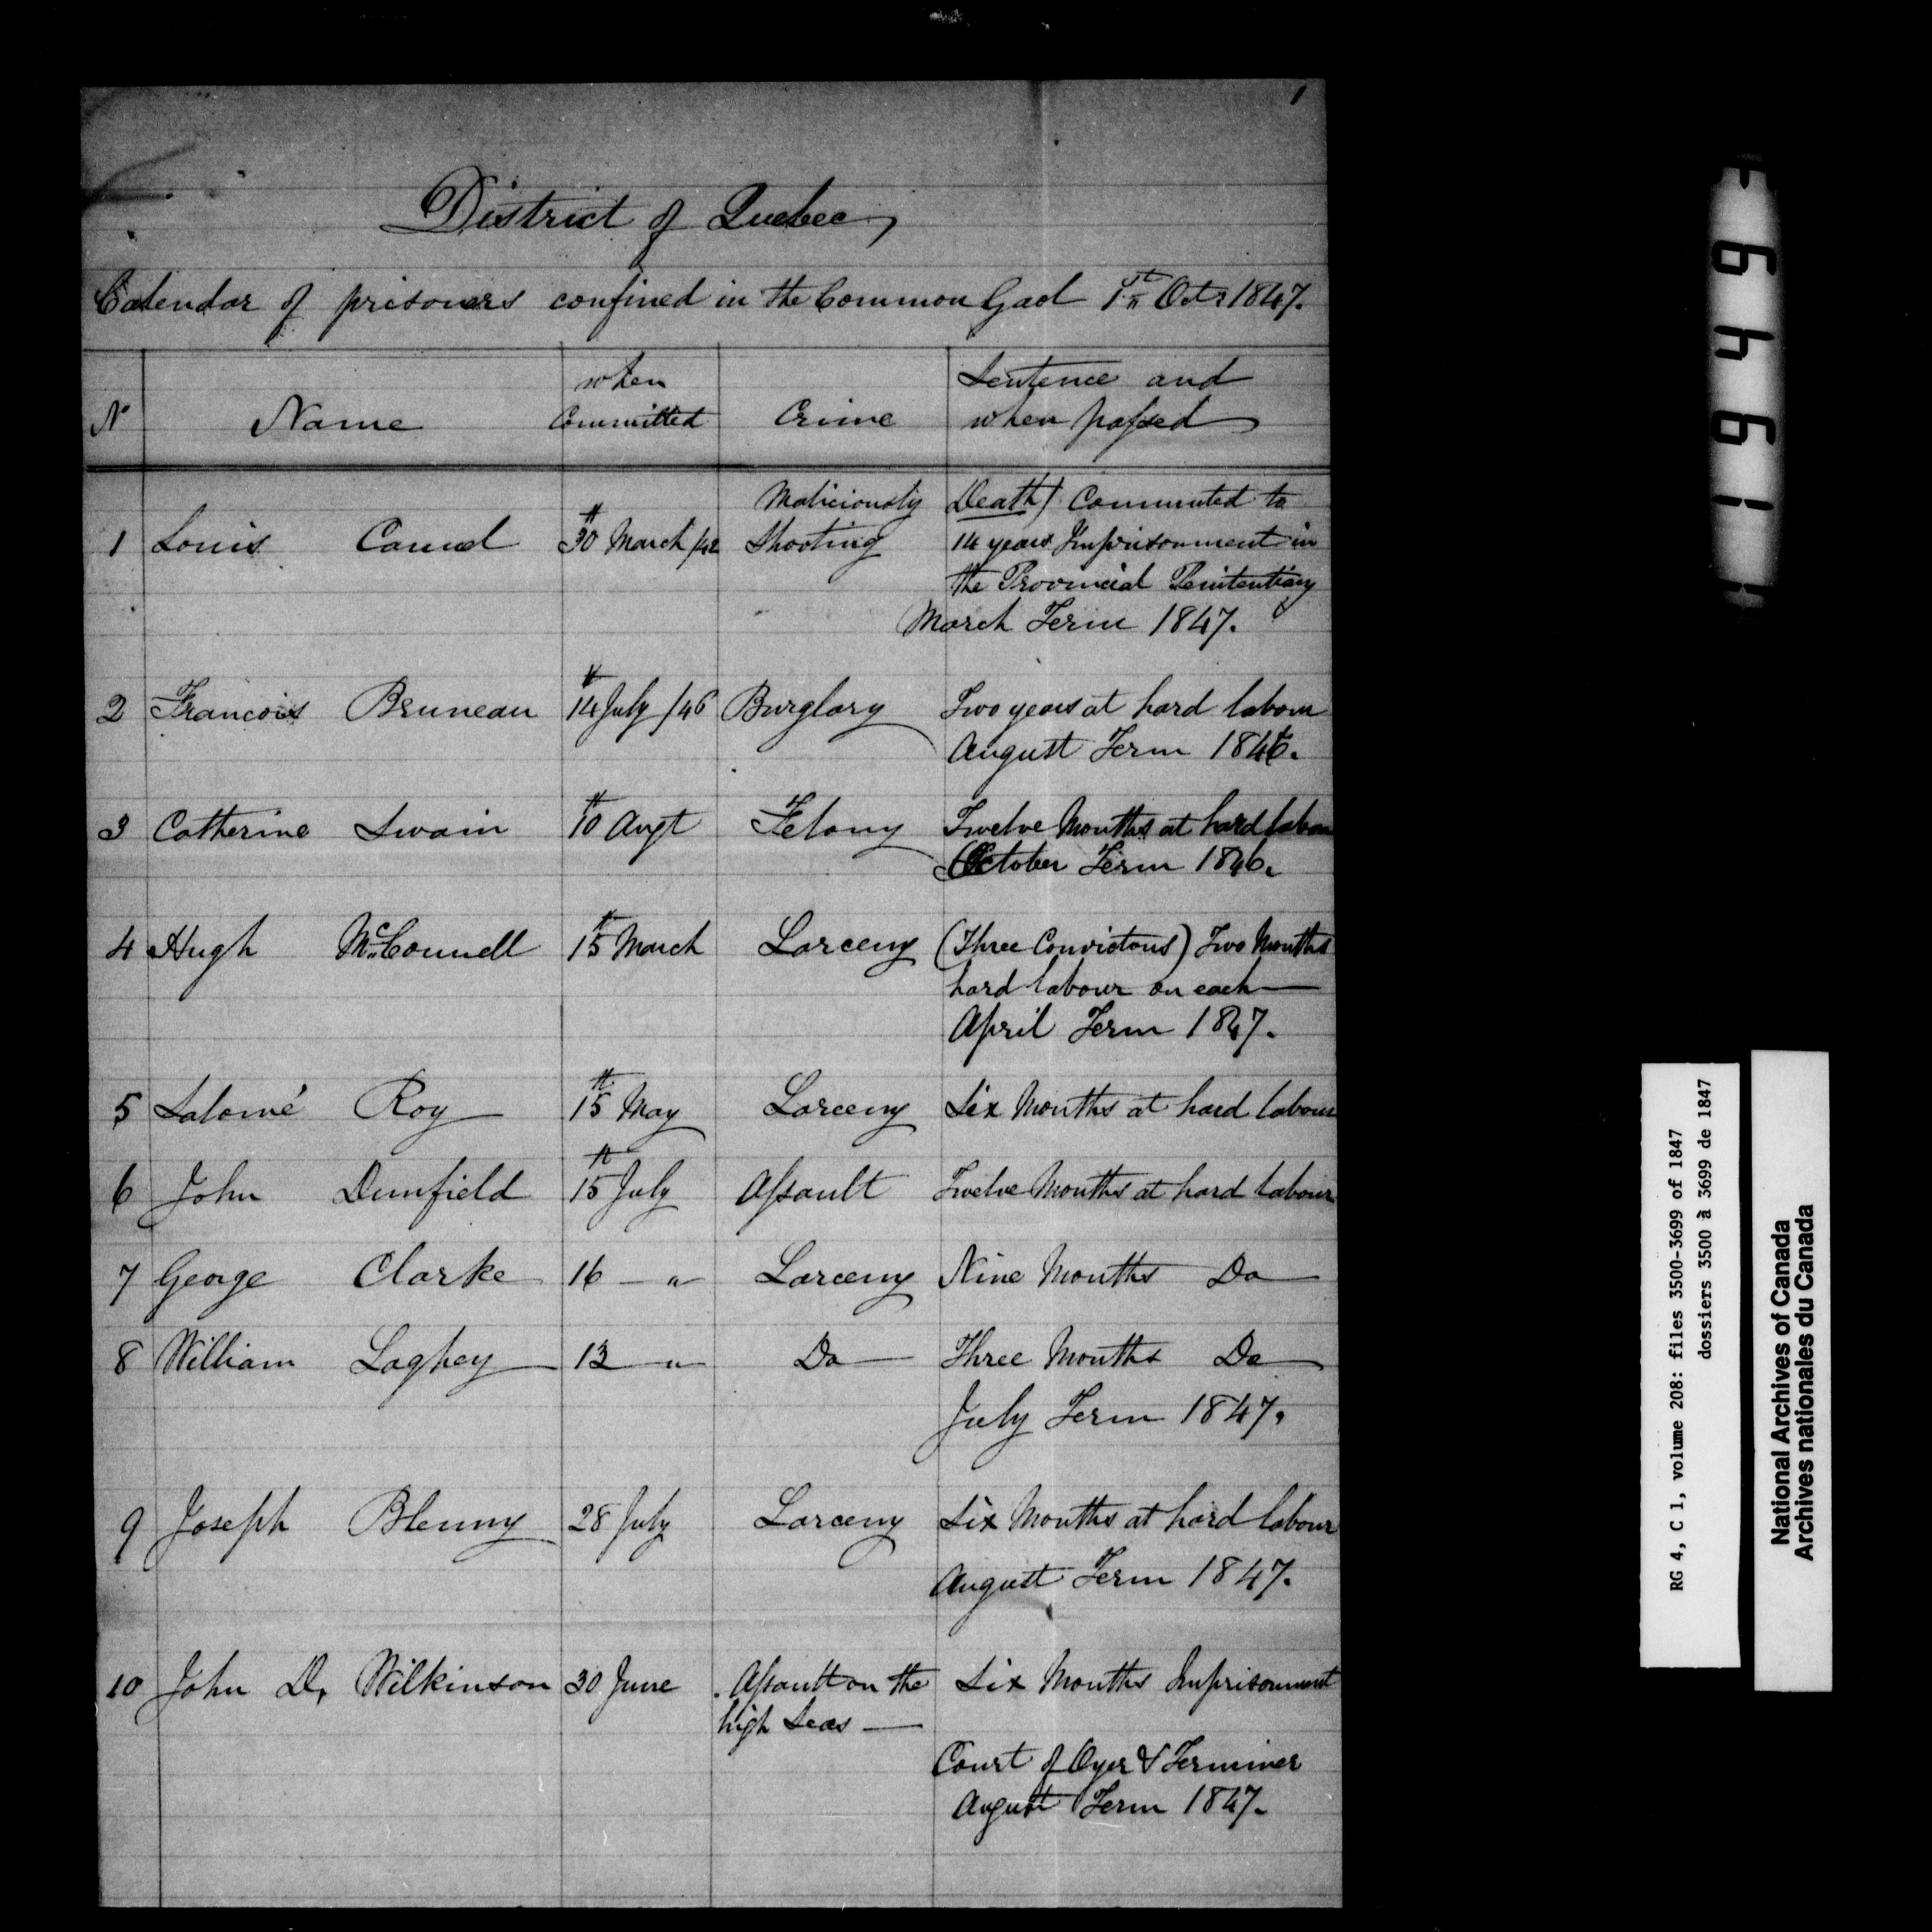 1
District of Quebec
Calendar of prisoners confined in the Common Gaol 1st Octr 1847.
No Name when Committed Crime Sentence and when passed
1 Louis 30th March /42 Maliciously Shooting Death / Commuted to
14 years Imprisonment in
the Provincial Penitentiary
March Term 1847.
2 Francois Bruneau 14th July /46 Burglary Two years at hard labour
August Term 1846.
3 Catherine Swain 10th Augt Felony Twelve Months at hard labour
October Term 1846.
4 Hugh McConnell 15th March Larceny (Three Convictons) Two Months
hard labour on each
April Term 1847.
5 Salomé Roy 15th May Larceny Six Months at hard labour
6 John Dunfield 15th July Assault Twelve Months at hard labour
7 George Clarke 16 — " Larceny Nine Months Do
8 William Laghey 13 — " Do Three Months Do
July Term 1847.
9 Joseph Blenny 28 July Larceny Six Months at hard labour
August Term 1847.
10 John D. Wilkinson 30 June Assault on the high Seas — Six Months Imprisonment
Court of Oyer & Terminer
August Term 1847.
RG 4, C 1, volume 208: files 3500-3699 of 1847
dossiers 3500 à 3699 de 1847
National Archives of Canada
Archives nationales du Canada